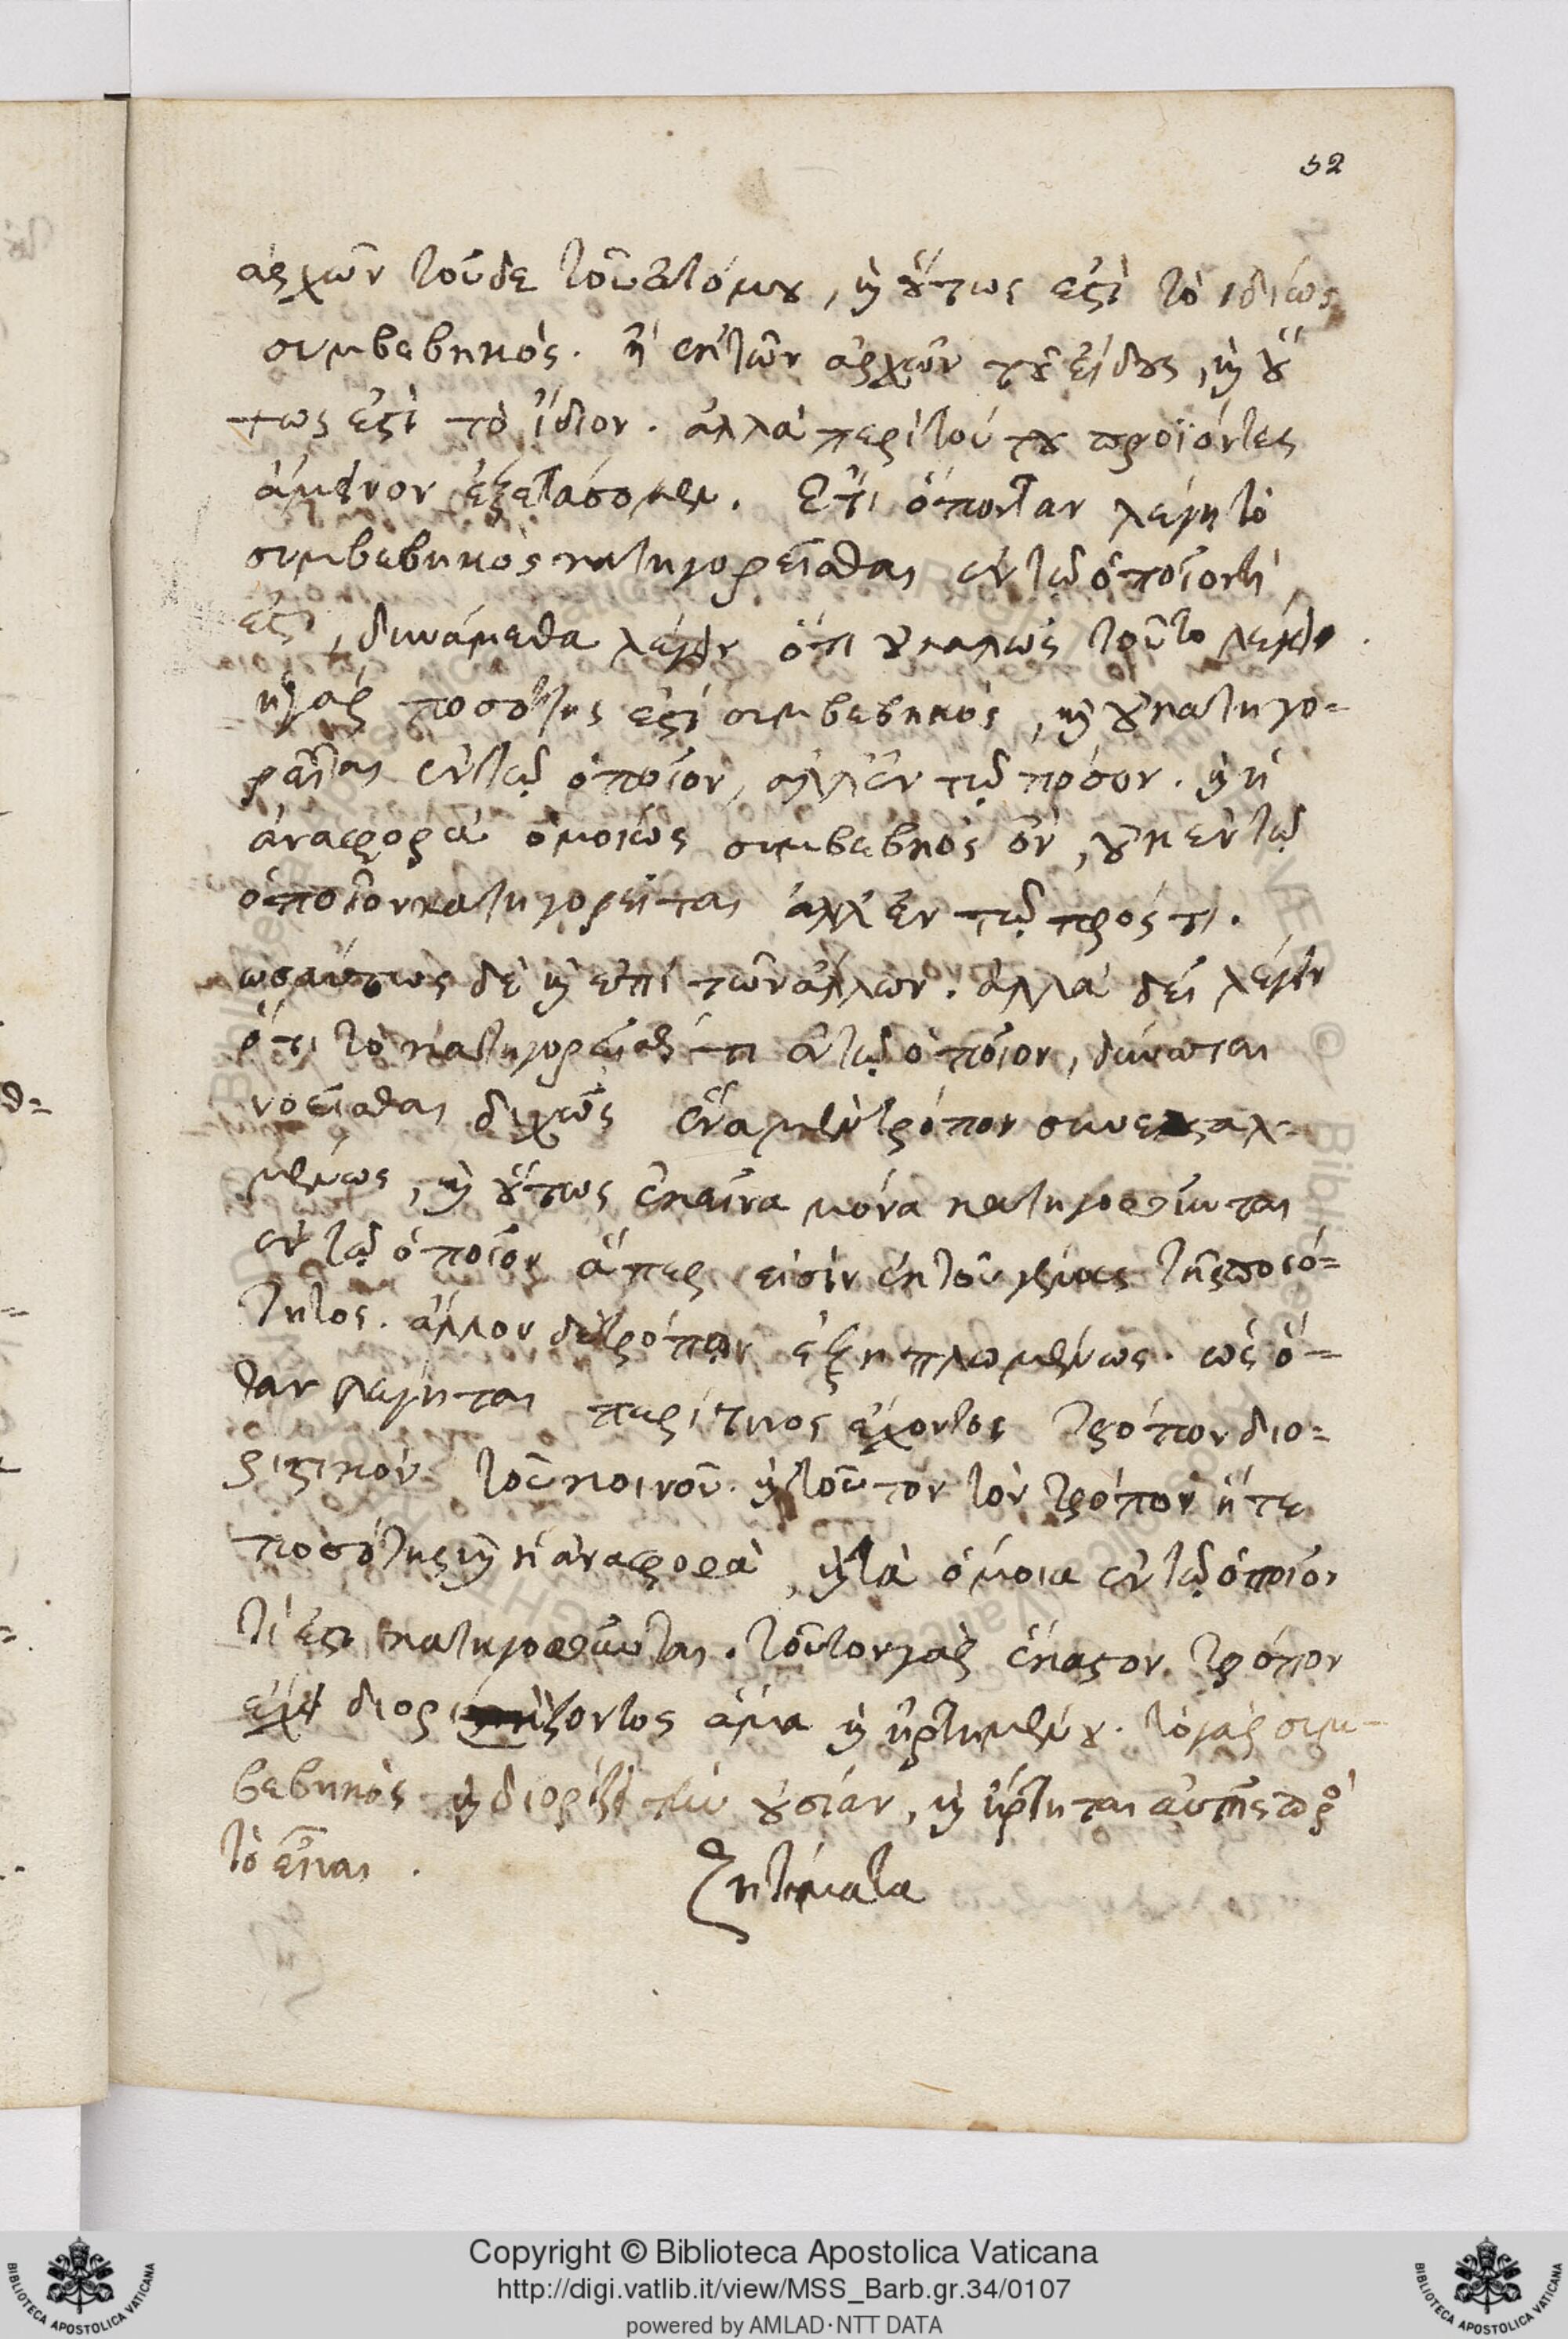 52
ἀρχῶν τοῦδε τοῦ ἀτόμου, καὶ οὕτως ἐστὶ τὸ ἰδίως
συμβεβηκός. ἢ ἐκ τῶν ἀρχῶν τοῦ εἴδους, καὶ οὕ
τως ἐστὶ τὸ ἴδιον. ἀλλὰ περὶ τούτου προϊόντες
ἄμεινον ἐξετάσομεν. Ἔτι ὁπόταν λέγη τὸ
συμβεβηκὸς κατηγορεῖσθαι ἐν τῷ ὁποῖόν τί
ἐστι, δυνάμεθα λέγειν ὅτι οὐ καλῶς τοῦτο λέγει.
ἡ γὰρ ποσότης ἐστὶ συμβεβηκός, καὶ οὐ κατηγο-
ρεῖται ἐν τῷ ὁποῖον, ἀλλ' ἐν τῷ πόσον. καὶ ἡ
ἀναφορὰ ὁμοίως συμβεβηκὸς ὂν, οὐκ ἐν τῷ
ὁποῖον κατηγορεῖται ἀλλ' ἐν τῷ πρός τι.
ὡσαύτως δὲ καὶ ἐπὶ τῶν ἄλλων. ἀλλὰ δεῖ λέγειν
ὅτι τὸ κατηγορεῖσθαί τι ἐν τῷ ὁποῖον, δύναται
νοεῖσθαι διχῶς ἕνα μὲν τρόπον συνεσταλ-
μένως, καὶ οὕτως ἐκεῖνα μόνα κατηγοροῦνται
ἐν τῷ ὁποῖον ἅπερ εἰσὶν ἐκ τοῦ γένους τῆς ποιό-
τητος. ἄλλον δὲ τρόπον ἐξηπλωμένως. ὡς ὅ-
ταν λέγηται περί τινος ἔχοντος τρόπον διο-
ριστικὸν τοῦ κοινοῦ. καὶ τοῦτον τὸν τρόπον ἥ τε
ποσότης καὶ ἡ ἀναφορὰ, καὶ τὰ ὅμοια ἐν τῷ ὁποῖόν
τί ἐστι κατηγοροῦνται. τοῦτον γὰρ ἕκαστον τρόπον
ἔχει διορίζοντος ἅμα καὶ ἠρτημένου. τὸ γὰρ συμ-
βεβηκὸς καὶ διορίζει τὴν οὐσίαν, καὶ ἤρτηται αὐτῆς πρὸς
τὸ εἶναι.
Ζητήματα
Copyright © Biblioteca Apostolica Vaticana
http://digi.vatlib.it/view/MSS_Barb.gr.34/0107
powered by AMLAD·NTT DATA